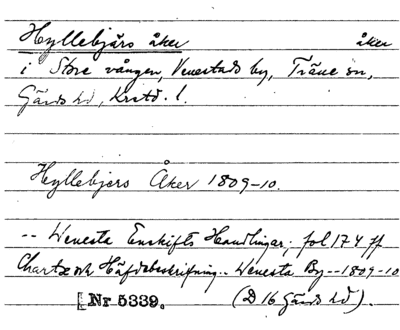 Hyllebjärs åker åker
i Store vången, Venestads by, Träne sn,
Gärds hd, Krstd. l.
Hyllebjers Åker 1809-10.
-- Wenesta Enskifts Handlingar, fol 174 ff
Chartæ och Häfdebeskrifning.. Wenesta By -- 1809-10
[Nr 5339. (D 16 Gärds hd).